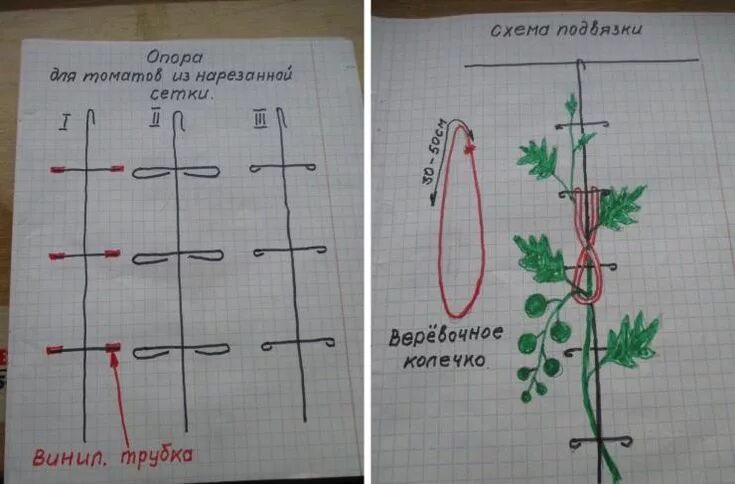 Опора
для томатов из нарезанной
сетки.
I II III
Винил. трубка
схема подвязки
30-50см
Верёвочное
колечко.